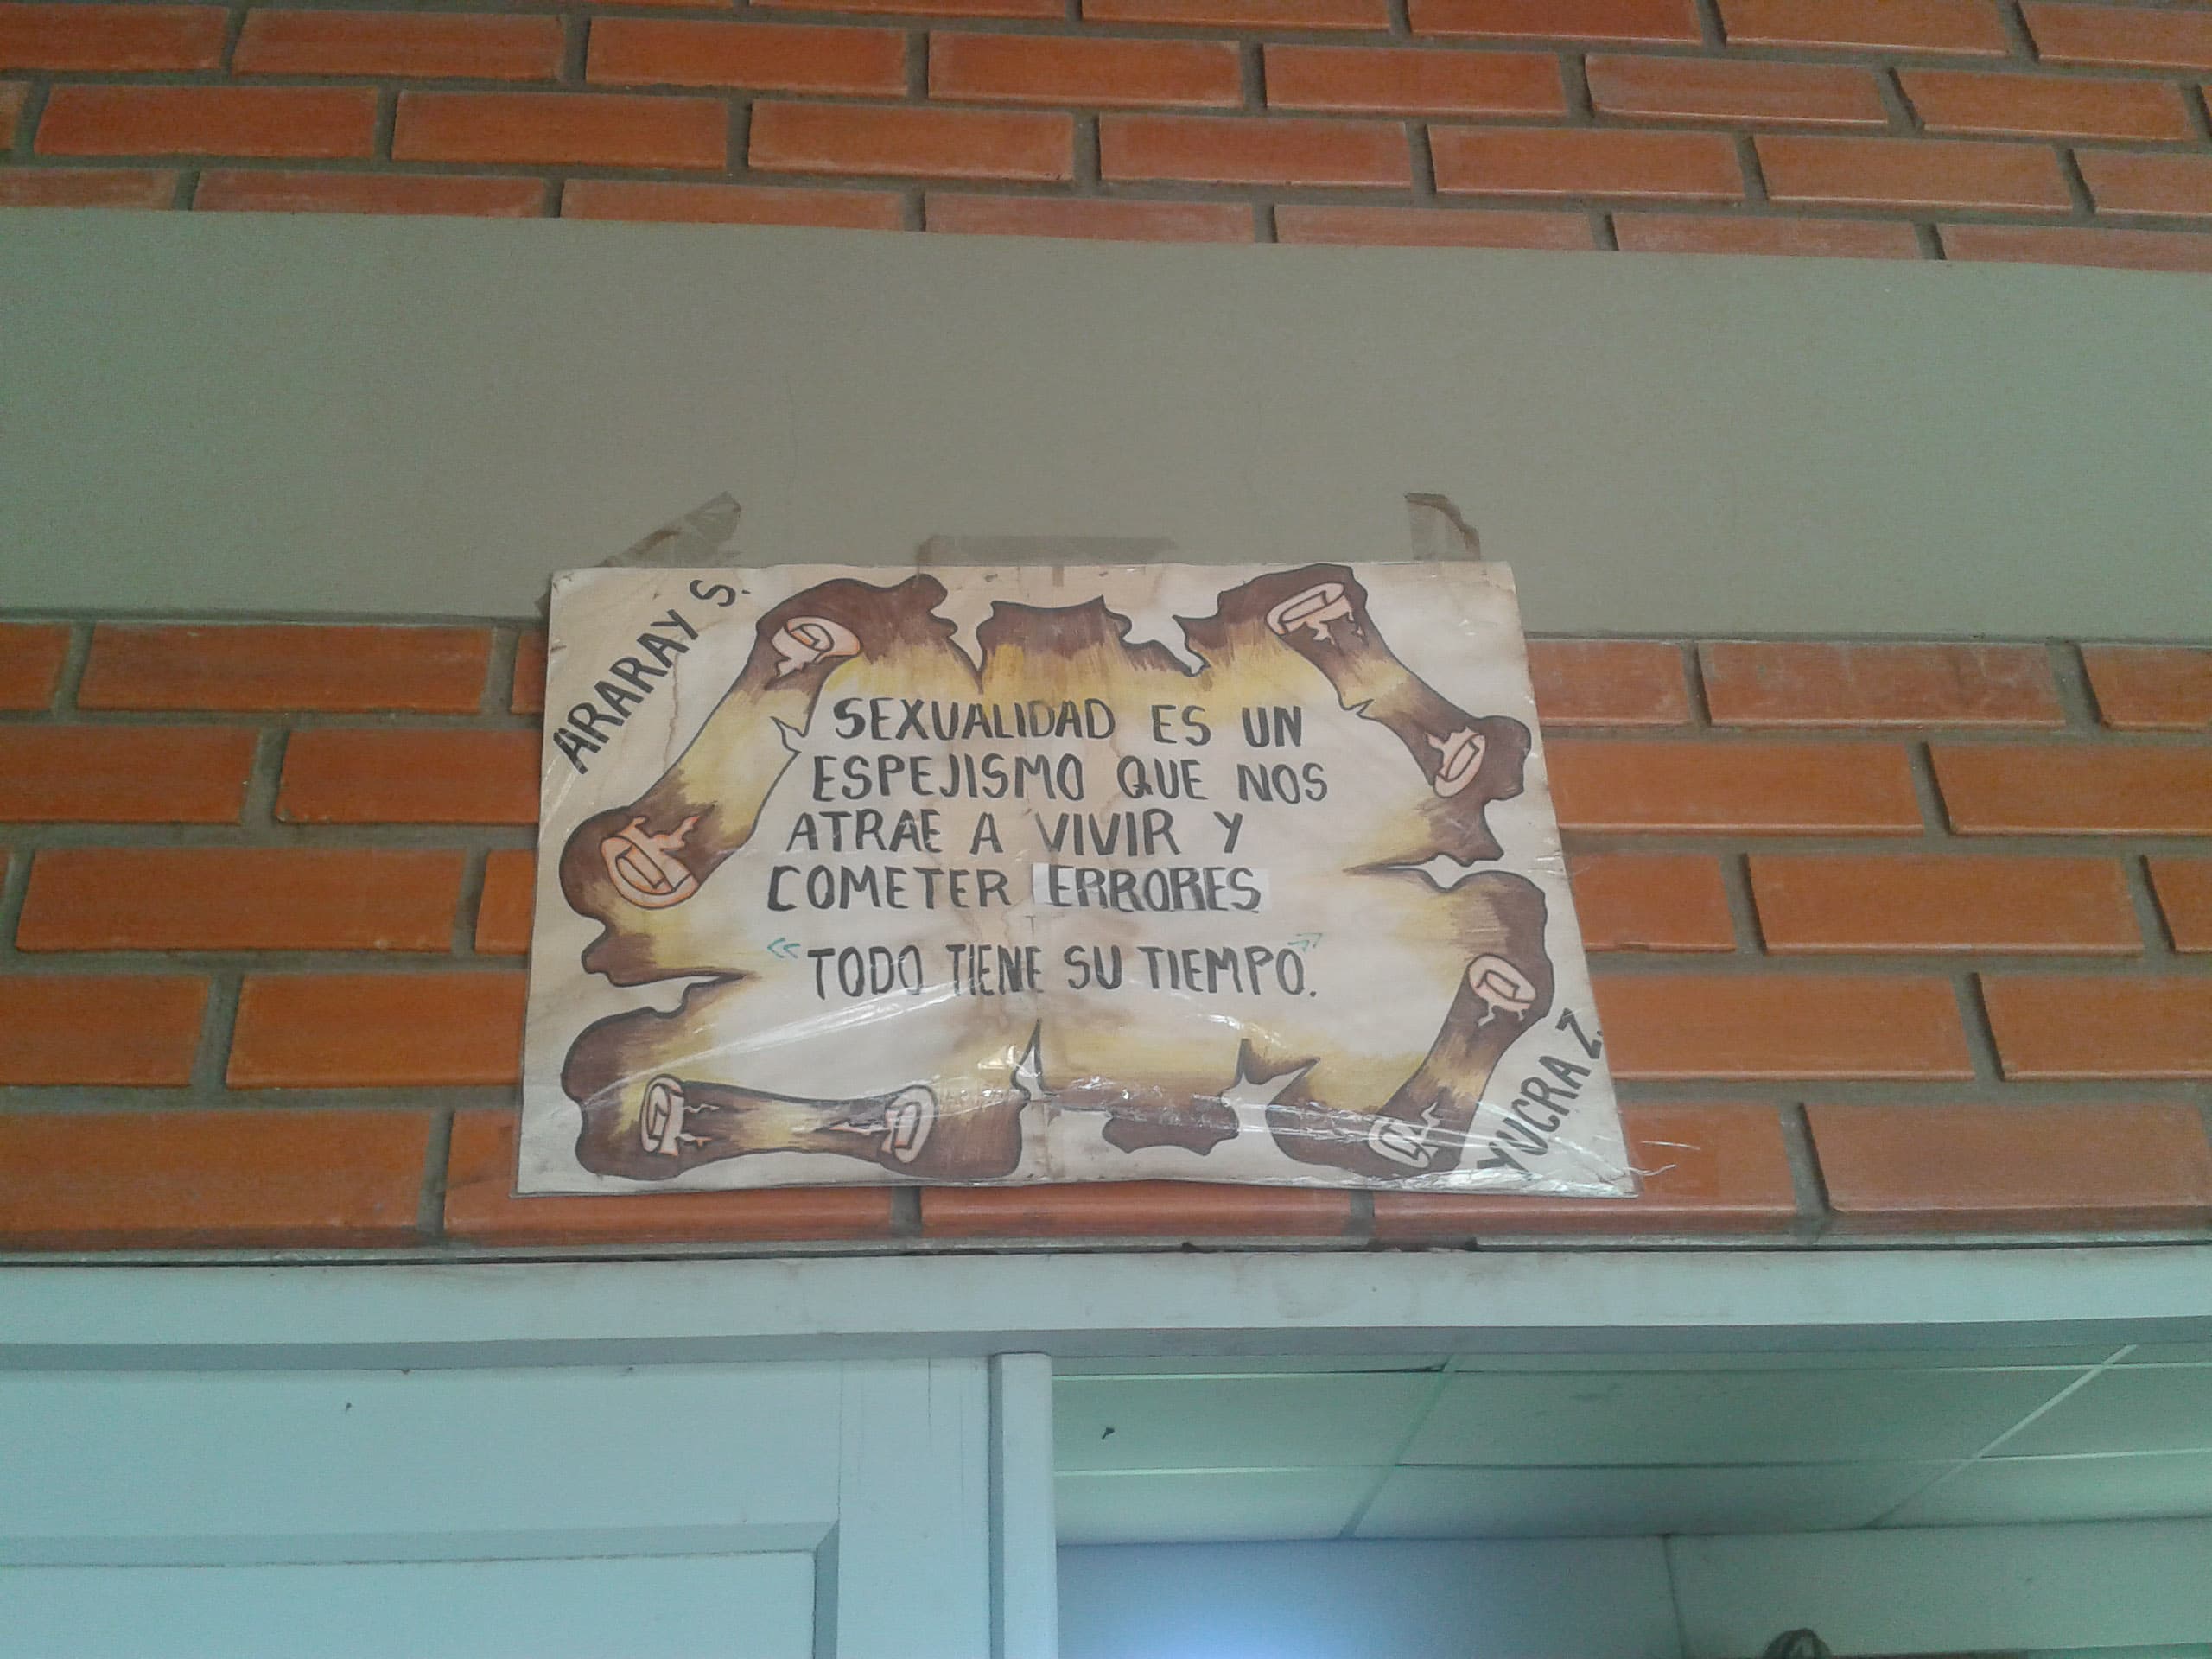 ARARAY S.
SEXUALIDAD ES UN
ESPEJISMO QUE NOS
ATRAE A VIVIR Y
COMETER ERRORES
"TODO TIENE SU TIEMPO".
YUCRA Z.